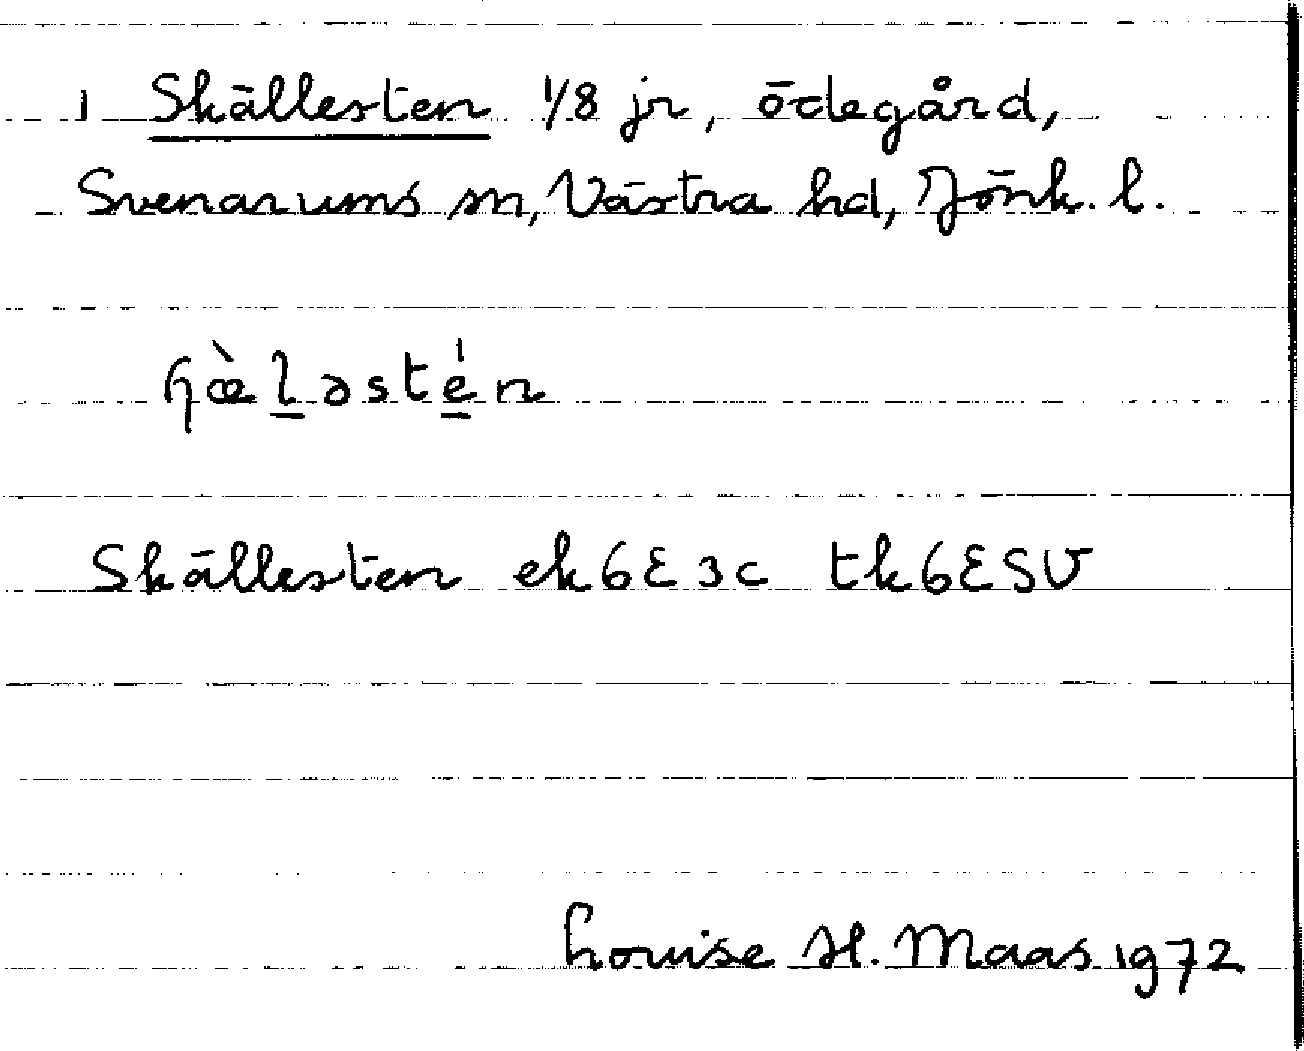 1 Skällesten 1/8 jr, ödegård,
Svenarums sn, Västra hd, Jönk. l.
ɧæ̀ləstén
Skällesten ek 6E3c tk 6ESV
Louise H. Maas 1972